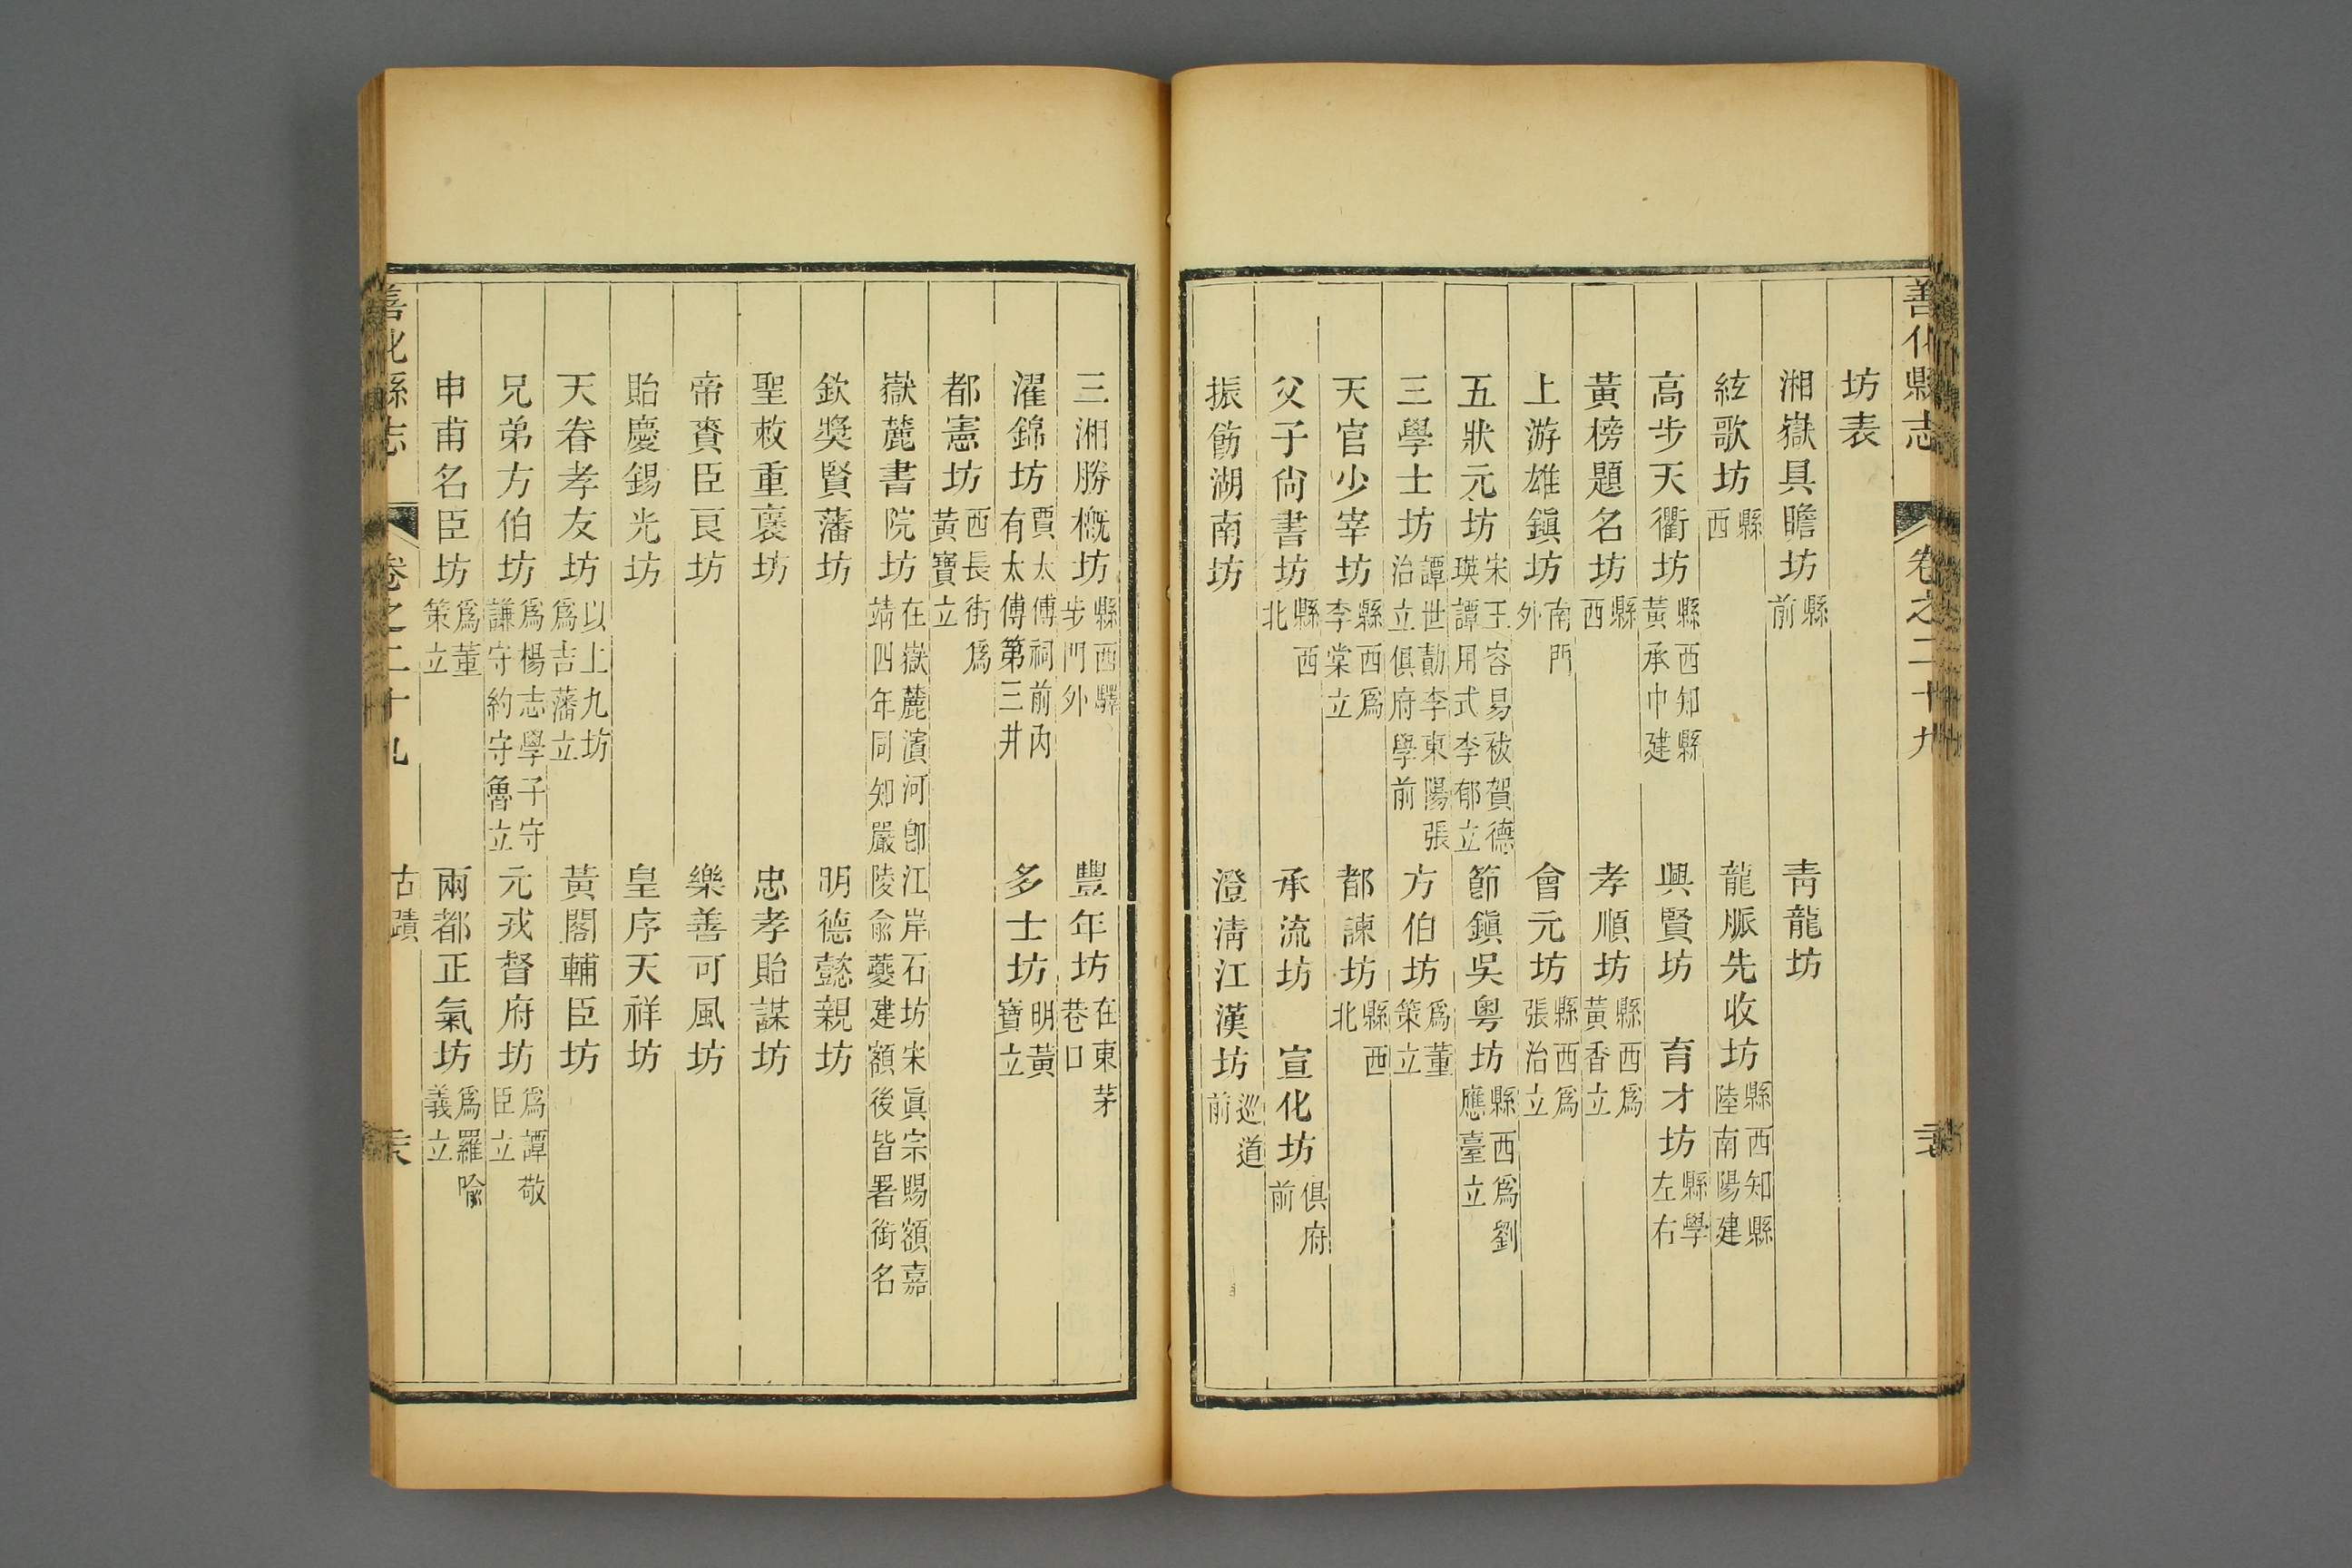 善化縣志 卷之二十九
坊表
湘嶽具瞻坊 縣前 青龍坊
絃歌坊 縣西 龍脈先收坊 縣西知縣陸南陽建
高步天衢坊 縣西知縣黃承中建 興賢坊 育才坊 縣學左右
黃榜題名坊 縣西 孝順坊 縣西爲黃香立
上游雄鎭坊 南門外 會元坊 縣西爲張治立
五狀元坊 宋王容易祓賀德瑛譚用式李郁立 節鎭吳粤坊 縣西爲劉應臺立
三學士坊 譚世勣李東陽張治立俱府學前 方伯坊 爲董策立
天官少宰坊 縣西爲李棠立 都諫坊 縣西北
父子尙書坊 縣西北 承流坊 宣化坊 俱府前
振飭湖南坊 澄淸江漢坊 巡道前
三湘勝槪坊 縣西驛步門外 豐年坊 在東茅巷口
濯錦坊 賈太傅祠前內有太傅第三井 多士坊 明黃寶立
都憲坊 西長街爲黃寶立
嶽麓書院坊 在嶽麓濱河卽江岸石坊宋眞宗賜額嘉靖四年同知嚴陵俞夔建額後皆署銜名
欽獎賢藩坊 明德懿親坊
聖敕重褒坊 忠孝貽謀坊
帝賚臣良坊 樂善可風坊
貽慶錫光坊 皇序天祥坊
天眷孝友坊 以上九坊爲吉藩立 黃閣輔臣坊
兄弟方伯坊 爲楊志學子守謙守約守魯立 元戎督府坊 爲譚敬臣立
申甫名臣坊 爲董策立 兩都正氣坊 爲羅喩義立
善化縣志 卷之二十九 古蹟